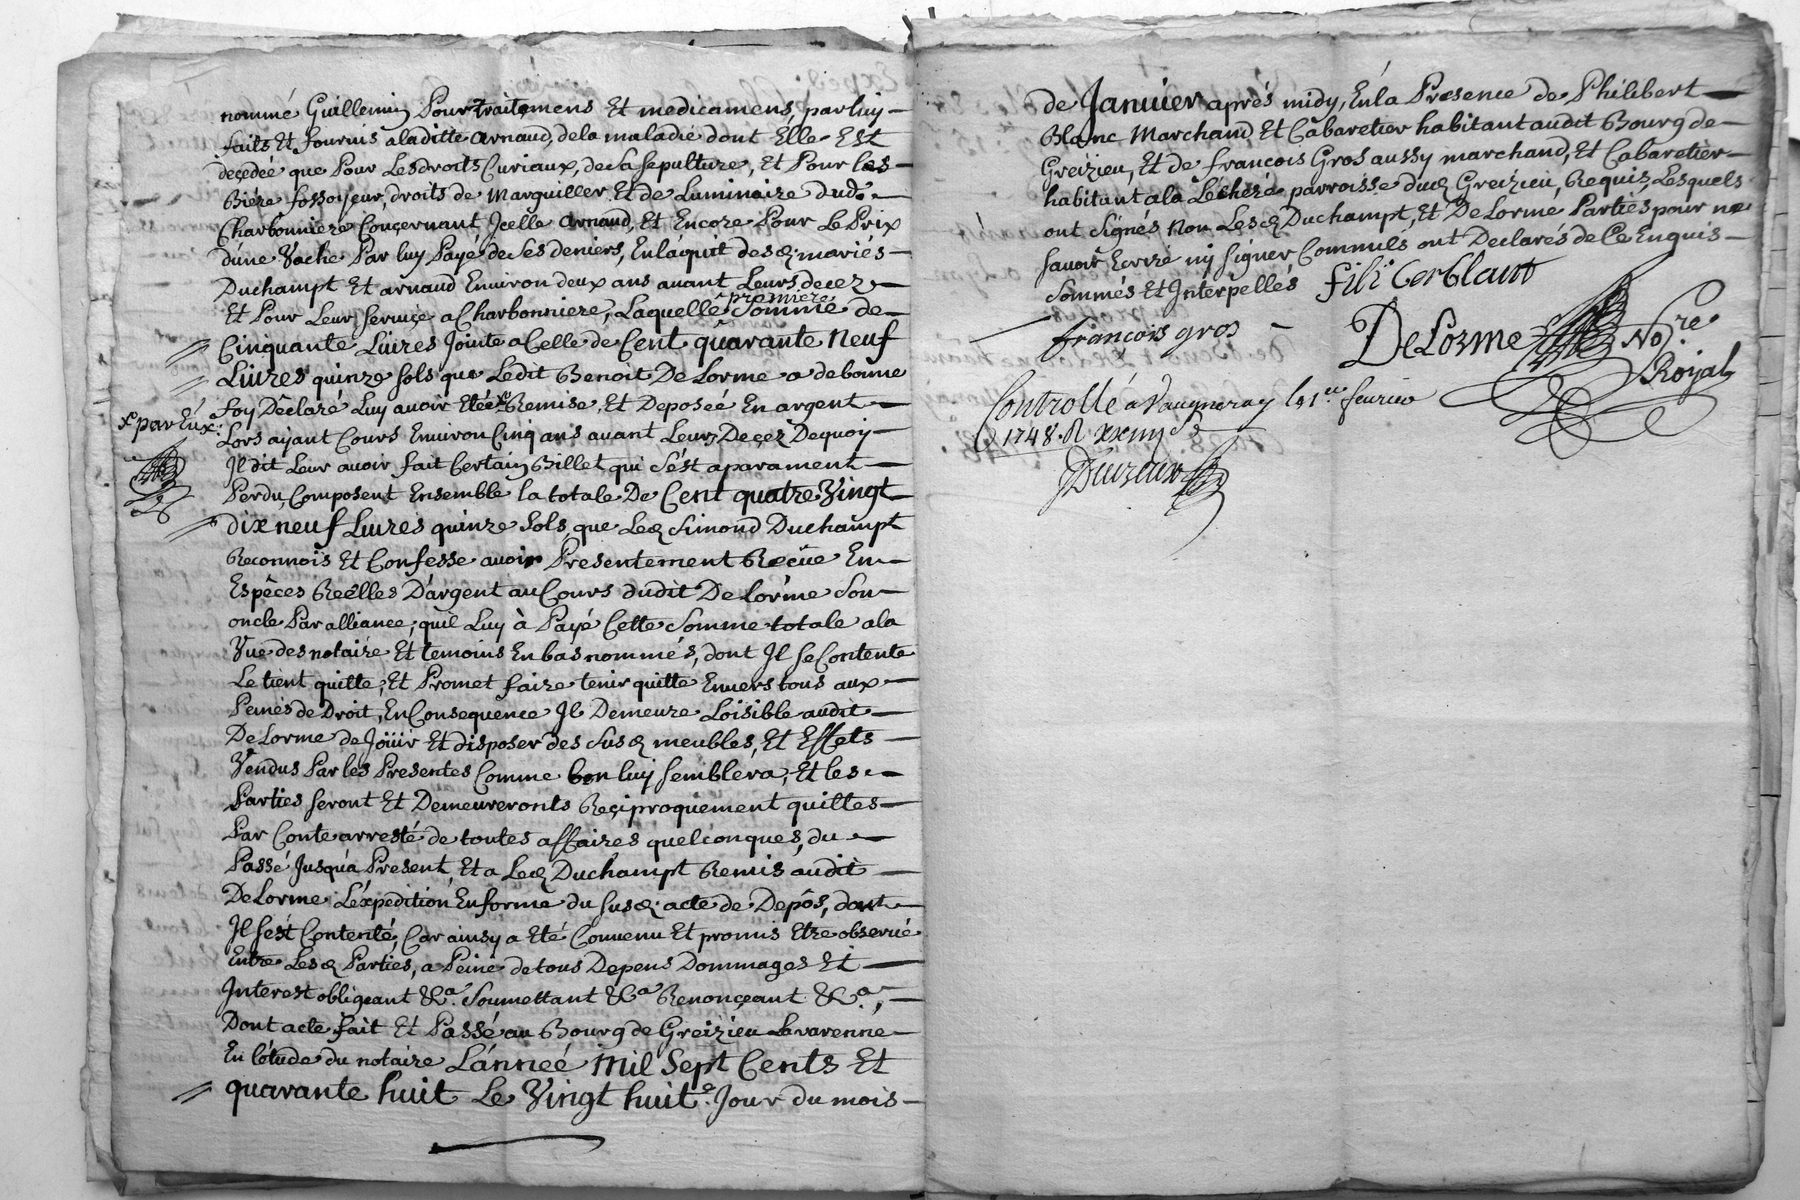 nommé Guillemin Pour traitemens Et medicamens, par luy
faits Et fournis aladitte arnaud, de la maladie dont Elle Est
deçedéé que Pour Lesdroits Curiaux, de sa sepulture, Et Pour les
Biére fossoyeur, droits de Marguiller Et de Luminaire dud.
Charbonniere Conçernant Jcelle arnaud, Et Encore Pour Le Prix
d'une Vache Par luy Payé de ses deniers, En l'aquit desd. mariés
Duchampt Et arnaud Environ deux ans avant Leurs decez
Et Pour Leur serviçe a Charbonniere, Laquelle premiere Somme de
Cinquante Livres Jointe a Celle de Cent quarante Neuf
Livres quinze sols que Ledit Benoit De Lorme a de bonne
foy Déclaré Luy avoir Eteé x Remise, Et Deposéé En argent
x par Eux
Lors ayant Cours Environ Cinq ans avant Leur Deçez Dequoy
Jl dit Leur avoir fait Certain Billet qui s'ést aparament
Perdu, Composent Ensemble la totale De Cent quatre Vingt
dix neuf Livres quinze sols, que Led. Simond Duchampt
Reconnois Et Confesse avoir Presentement Reçüe En
Espéces Reélles D'argent au Cours dudit De Lorme son
oncle Par alliance; quil Luy à Payé Cette Somme totale a la
Vue des notaire Et temoins En bas nommés, dont Jl se Contente
Le tient quitte; Et Promet faire tenir quitte Envers tous aux
Peines de Droit, En Consequence Jl Demeure Loisible audit
De Lorme de Joüir Et disposer des susd. meubles, Et Effets
Vendus Par les Presentes Comme bon luy semblera, Et les
Parties seront Et Demeureronts Reçiproquement quittes
Par Conte arresté de toutes affaires quelconques, du
Passé Jusqu'a Present, Et a Led. Duchampt Remis audit
De Lorme L'éxpedition En forme du susd. acte de Depôs, dont
Jl s'ést Contenté, Car ainsy a Eté Convenu Et promis Etre observé
Entre Lesd. Parties, a Peine de tous Depens Dommages Et
Interest obligeant &Ca. Soumettant &Ca Renonçeant &Ca.,
Dont acte fait Et Passé au Bourg de Greizieu Lavarenne
En l'étude du notaire L'année Mil Sept Cents Et
quarante huit Le Vingt huite. Jour du mois
de Janvier aprés midy, En la Presence de Philibert
Blanc Marchand, Et Cabaretier habitant audit Bourg de
Greizieu, Et de francois Gros aussy marchand, Et Cabaretier
habitant a la parroisse dud. Greizieu, Requis, Lesquels
ont signés Non Lesd. Duchampt, Et De Lorme Parties pour ne
savoir Ecrire ny signer, Commils ont Declarés de Ce Enquis
Sommés Et Interpellés fili Cer blanc
françois gros
DeLorme No.re
Royal
Controllé a Vaugneray le 1er fevrier
1748. R